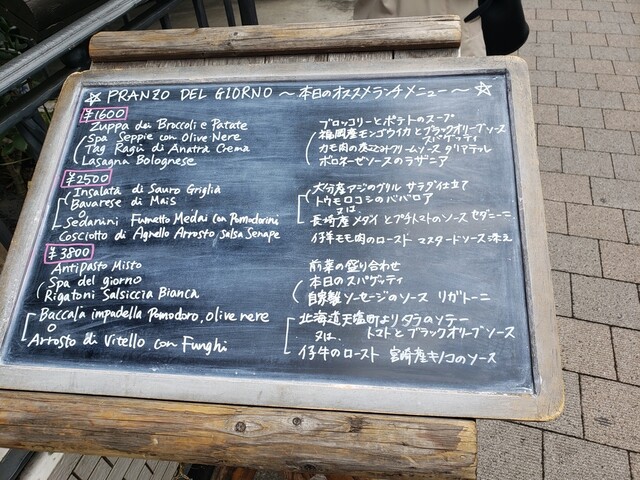 ☆ PRANZO DEL GIORNO ～本日のオススメランチメニュー～ ☆
¥1600
Zuppa dei Broccoli e Patate ブロッコリーとポテトのスープ
Spa Seppie con Olive Nere 福岡産モンゴウイカとブラックオリーブソース スパゲッティ
Tag Ragù di Anatra Crema カモ肉の煮こみクリームソース タリアテッレ
Lasagna Bolognese ボロネーゼソースのラザニア
¥2500
Insalata di Sauro Griglia 大分産アジのグリル サラダ仕立て
Bavarese di Mais トウモロコシのババロア
O 又は
Sedanini Fumetto Medai con Pomodorini 長崎産メダイとプチトマトのソース セダニーニ
Cosciotto di Agnello Arrosto, Salsa Senape 仔羊モモ肉のロースト マスタードソース添え
¥3800
Antipasto Misto 前菜の盛り合わせ
Spa del giorno 本日のスパゲッティ
Rigatoni Salsiccia Bianca 自家製ソーセージのソース リガトーニ
Baccalà impadella Pomodoro, olive nere 北海道天塩町よりタラのソテー
O 又は、 トマトとブラックオリーブソース
Arrosto di Vitello con Funghi 仔牛のロースト 宮崎産キノコのソース